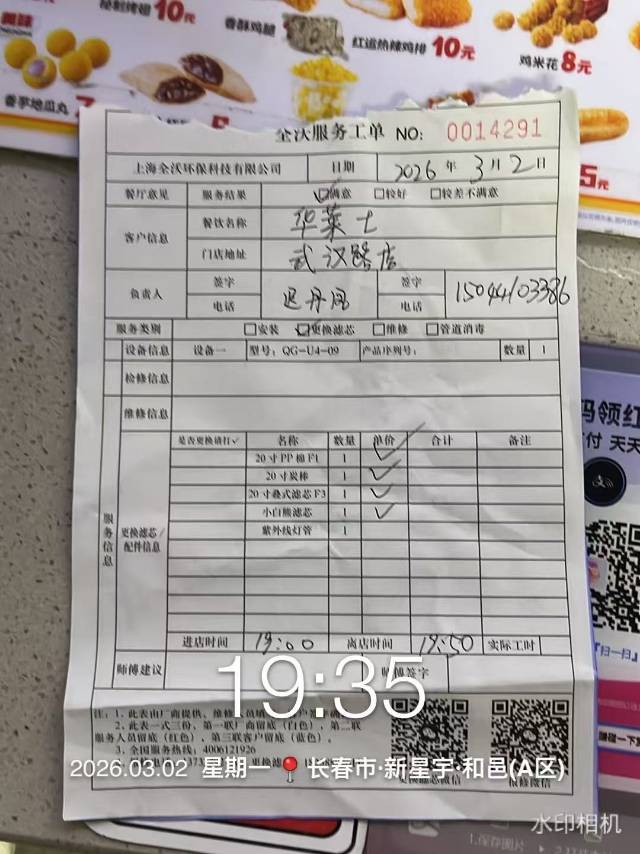 美味
秘制烤翅 10元
香酥鸡腿
红运热辣鸡排 10元
鸡米花 8元
香芋地瓜丸
5元
全沃服务工单 NO: 0014291
上海全沃环保科技有限公司 日期 2026年3月2日
餐厅意见 服务结果 ☑满意 □较好 □较差不满意
客户信息 餐饮名称 华莱士
门店地址 武汉路店
负责人 签字 签字
电话 电话 15044103386
服务类别 □安装 ☑更换滤芯 □维修 □管道消毒
设备信息 设备一 型号: QG-U4-09 产品序列号: 数量 1
检修信息
维修信息
服务信息 更换滤芯/配件信息
是否更换请打✓ 名称 数量 单价 合计 备注
20寸PP棉F1 1 ✓
20寸炭棒 1 ✓
20寸叠式滤芯F3 1 ✓
小白熊滤芯 1 ✓
紫外线灯管 1
进店时间 19:00 离店时间 19:50 实际工时
师傅建议 师傅签字
19:35
注: 1. 此表由厂商提供、维修
2. 此表一式三份, 第一联厂商留底(白色), 第二联
服务人员留底(红色), 第三联客户留底(蓝色)。
3. 全国服务热线: 4006121926
2026.03.02 星期一 长春市·新星宇·和邑(A区)
更换滤芯微信 报修微信
码领红
付 天天
"扫一扫"
水印相机